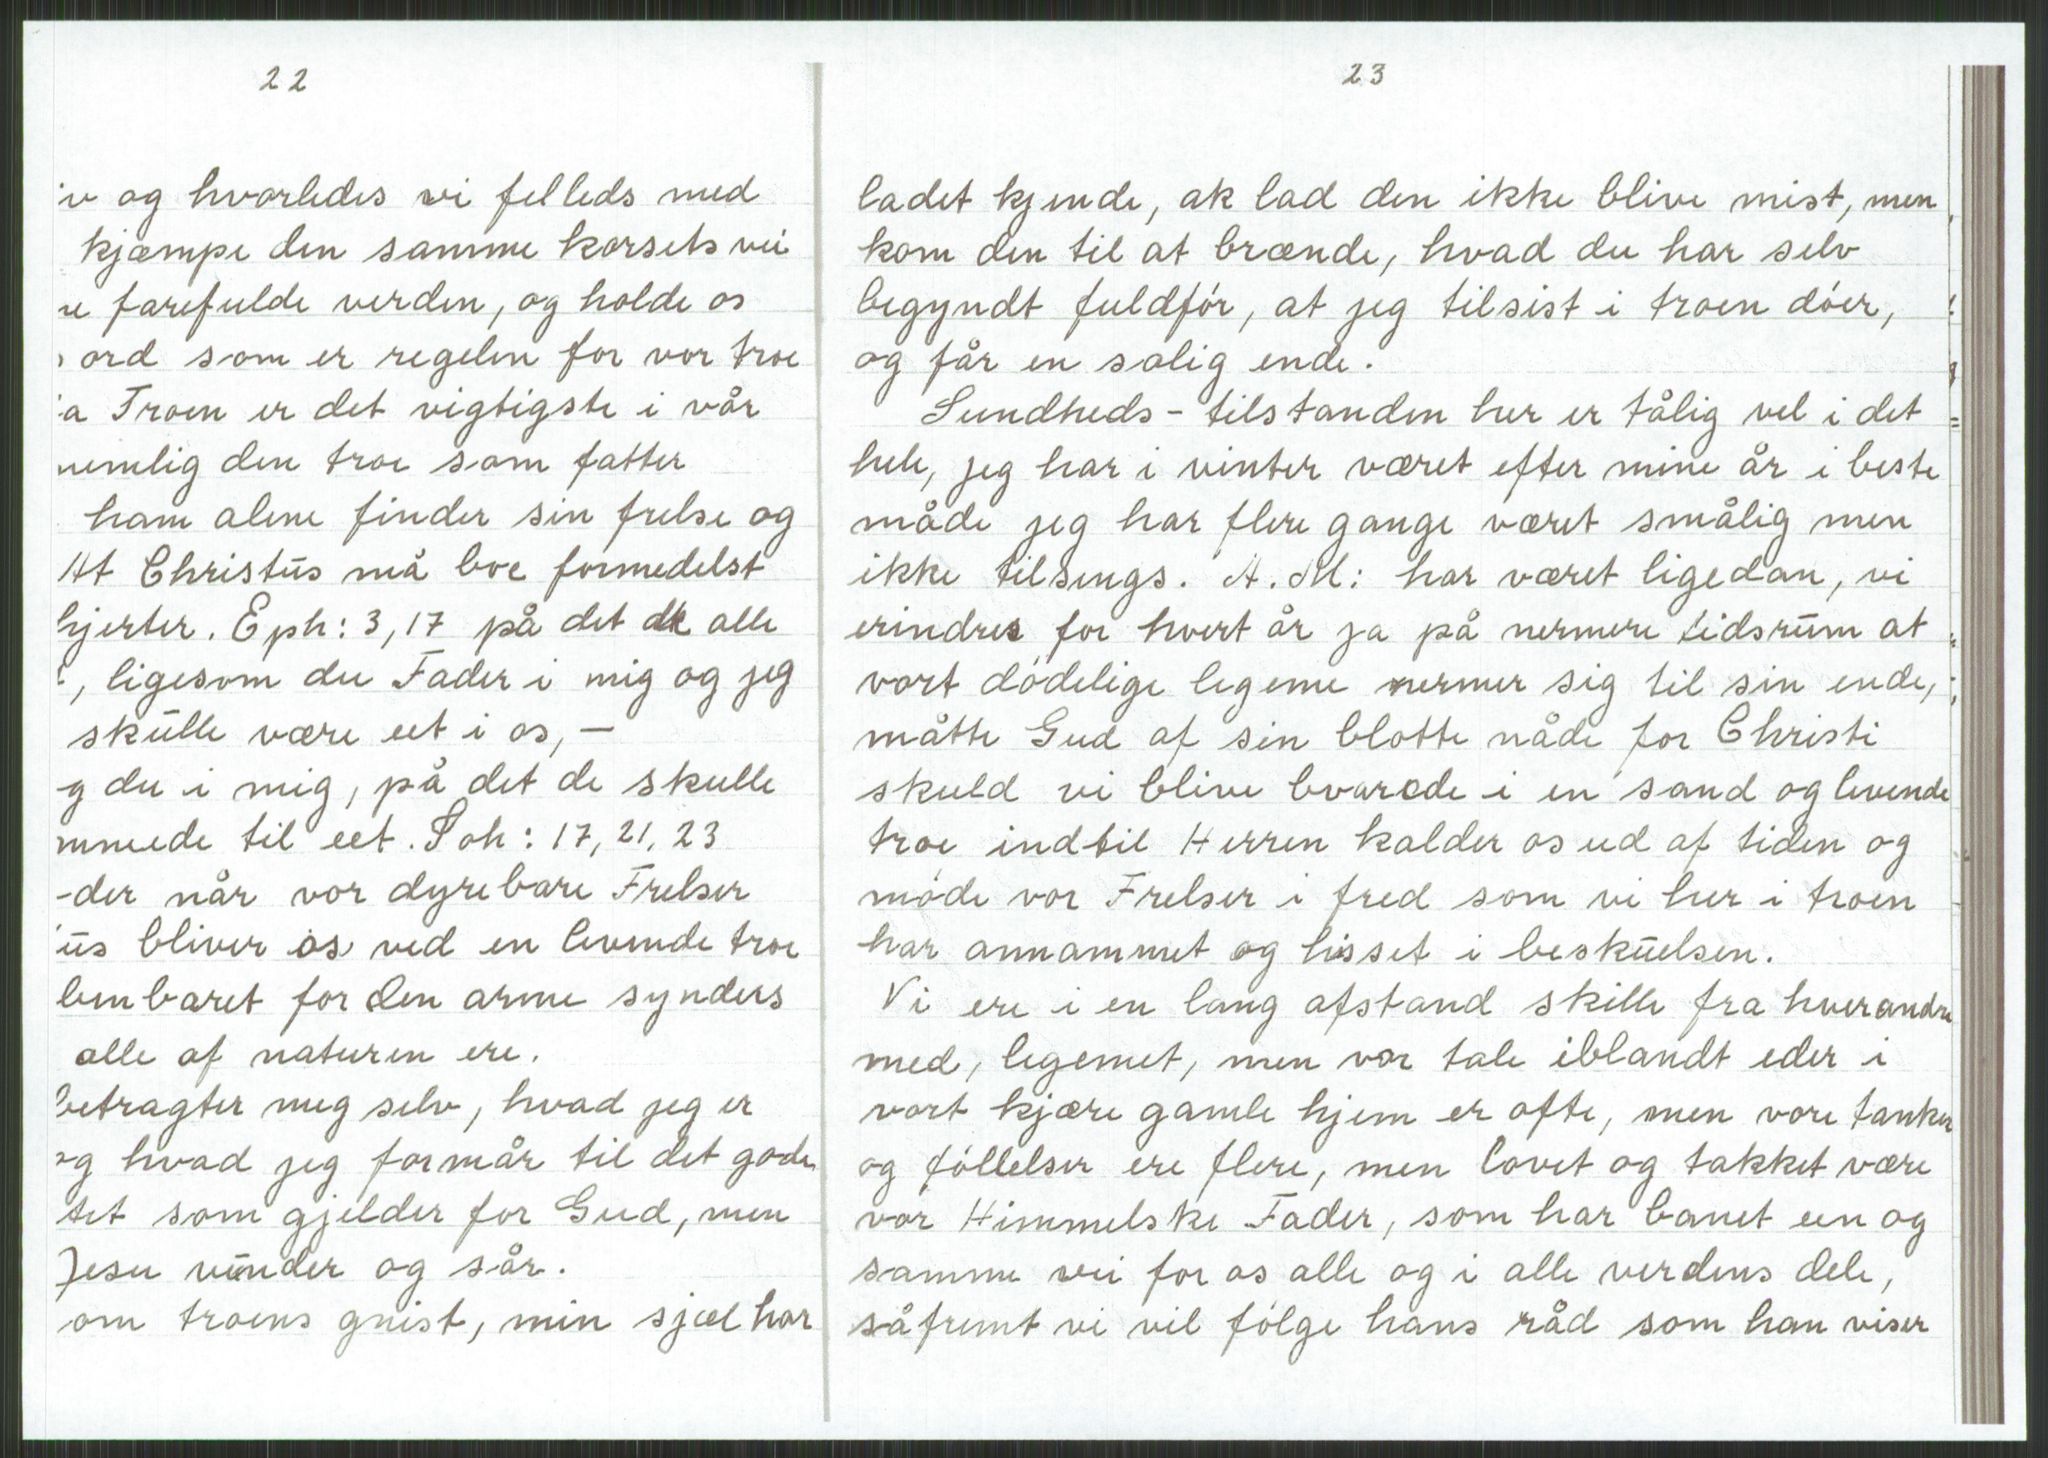 22
v og hvorledes vi felleds med
kjæmpe den samme korsets vei
farefulde verden, og holde os
ord som er regelen for vor troe
a Troen er det vigtigste i vår
nemlig den troe som fatter
ham alene finder sin frelse og
At Christus må boe formedelst
hjerter. Eph: 3, 17 på det de alle
, ligesom du Fader i mig og jeg
skulle være eet i os, —
g du i mig, på det de skulle
mmede til eet. Joh: 17, 21, 23
-der når vor dyrebare Frelser
us bliver os ved en levende troe
benbaret for den arme synders
alle af naturen ere.
betragter meg selv, hvad jeg er
og hvad jeg formår til det gode
tet som gjelder for Gud, men
Jesu vunder og sår.
om troens gnist, min sjæl har
23
ladet kjende, ak lad den ikke blive mist, men
kom den til at brænde, hvad du har selv
begyndt fuldför, at jeg tilsist i troen döer,
og får en salig ende.
Sundheds - tilstanden her er tålig vel i det
hele, jeg har i vinter været efter mine år i beste
måde jeg har flere gange været smålig men
ikke tilsengs. A. M: har været ligedan, vi
erindres for hvert år ja på nermere tidsrum at
vort dödelige legeme nermer sig til sin ende,
måtte Gud af sin blotte nåde for Christi
skuld vi blive bvarede i en sand og levende
troe indtil Herren kalder os ud af tiden og
möde vor Frelser i fred som vi her i troen
har annammet og hisset i beskuelsen.
Vi ere i en lang afstand skille fra hverandre
med, legemet, men vor tale iblandt eder i
vort kjære gamle hjem er ofte, men vore tanker
og föllelser ere flere, men lovet og takket være
vor Himmelske Fader, som har banet een og
samme vei for os alle og i alle verdens dele,
såfremt vi vil fölge hans råd som han viser